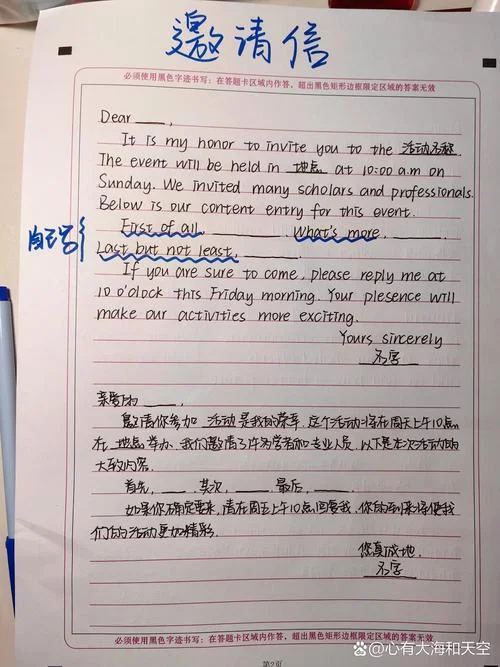 邀请信
必须使用黑色字迹书写：在答题卡区域内作答，超出黑色矩形边框限定区域的答案无效
Dear ____,
It is my honor to invite you to the 活动名称.
The event will be held in 地点 at 10:00 a.m on
Sunday. We invited many scholars and professionals.
Below is our content entry for this event.
自己写 First of all, ____. What's more, ____.
Last but not least, ____.
If you are sure to come, please reply me at
10 o'olock this Friday morning. Your plesence will
make our activities more exciting.
Yours sincerely
名字
亲爱的 ____,
邀请你参加 活动 是我的荣幸. 这个活动将在周天上午10点
在 地点 举办. 我们邀请了许多学者和专业人员. 以下是本次活动的
大致内容.
首先, ____. 其次, ____. 最后, ____.
如果你确定要来, 请在周五上午10点回复我. 你的到来将使我
们的活动更加精彩.
您真诚地.
名字
必须使用黑色字迹书写：在答题卡区域内作答，超出黑色矩形边框限定区域的答案无效
第2页
@心有大海和天空